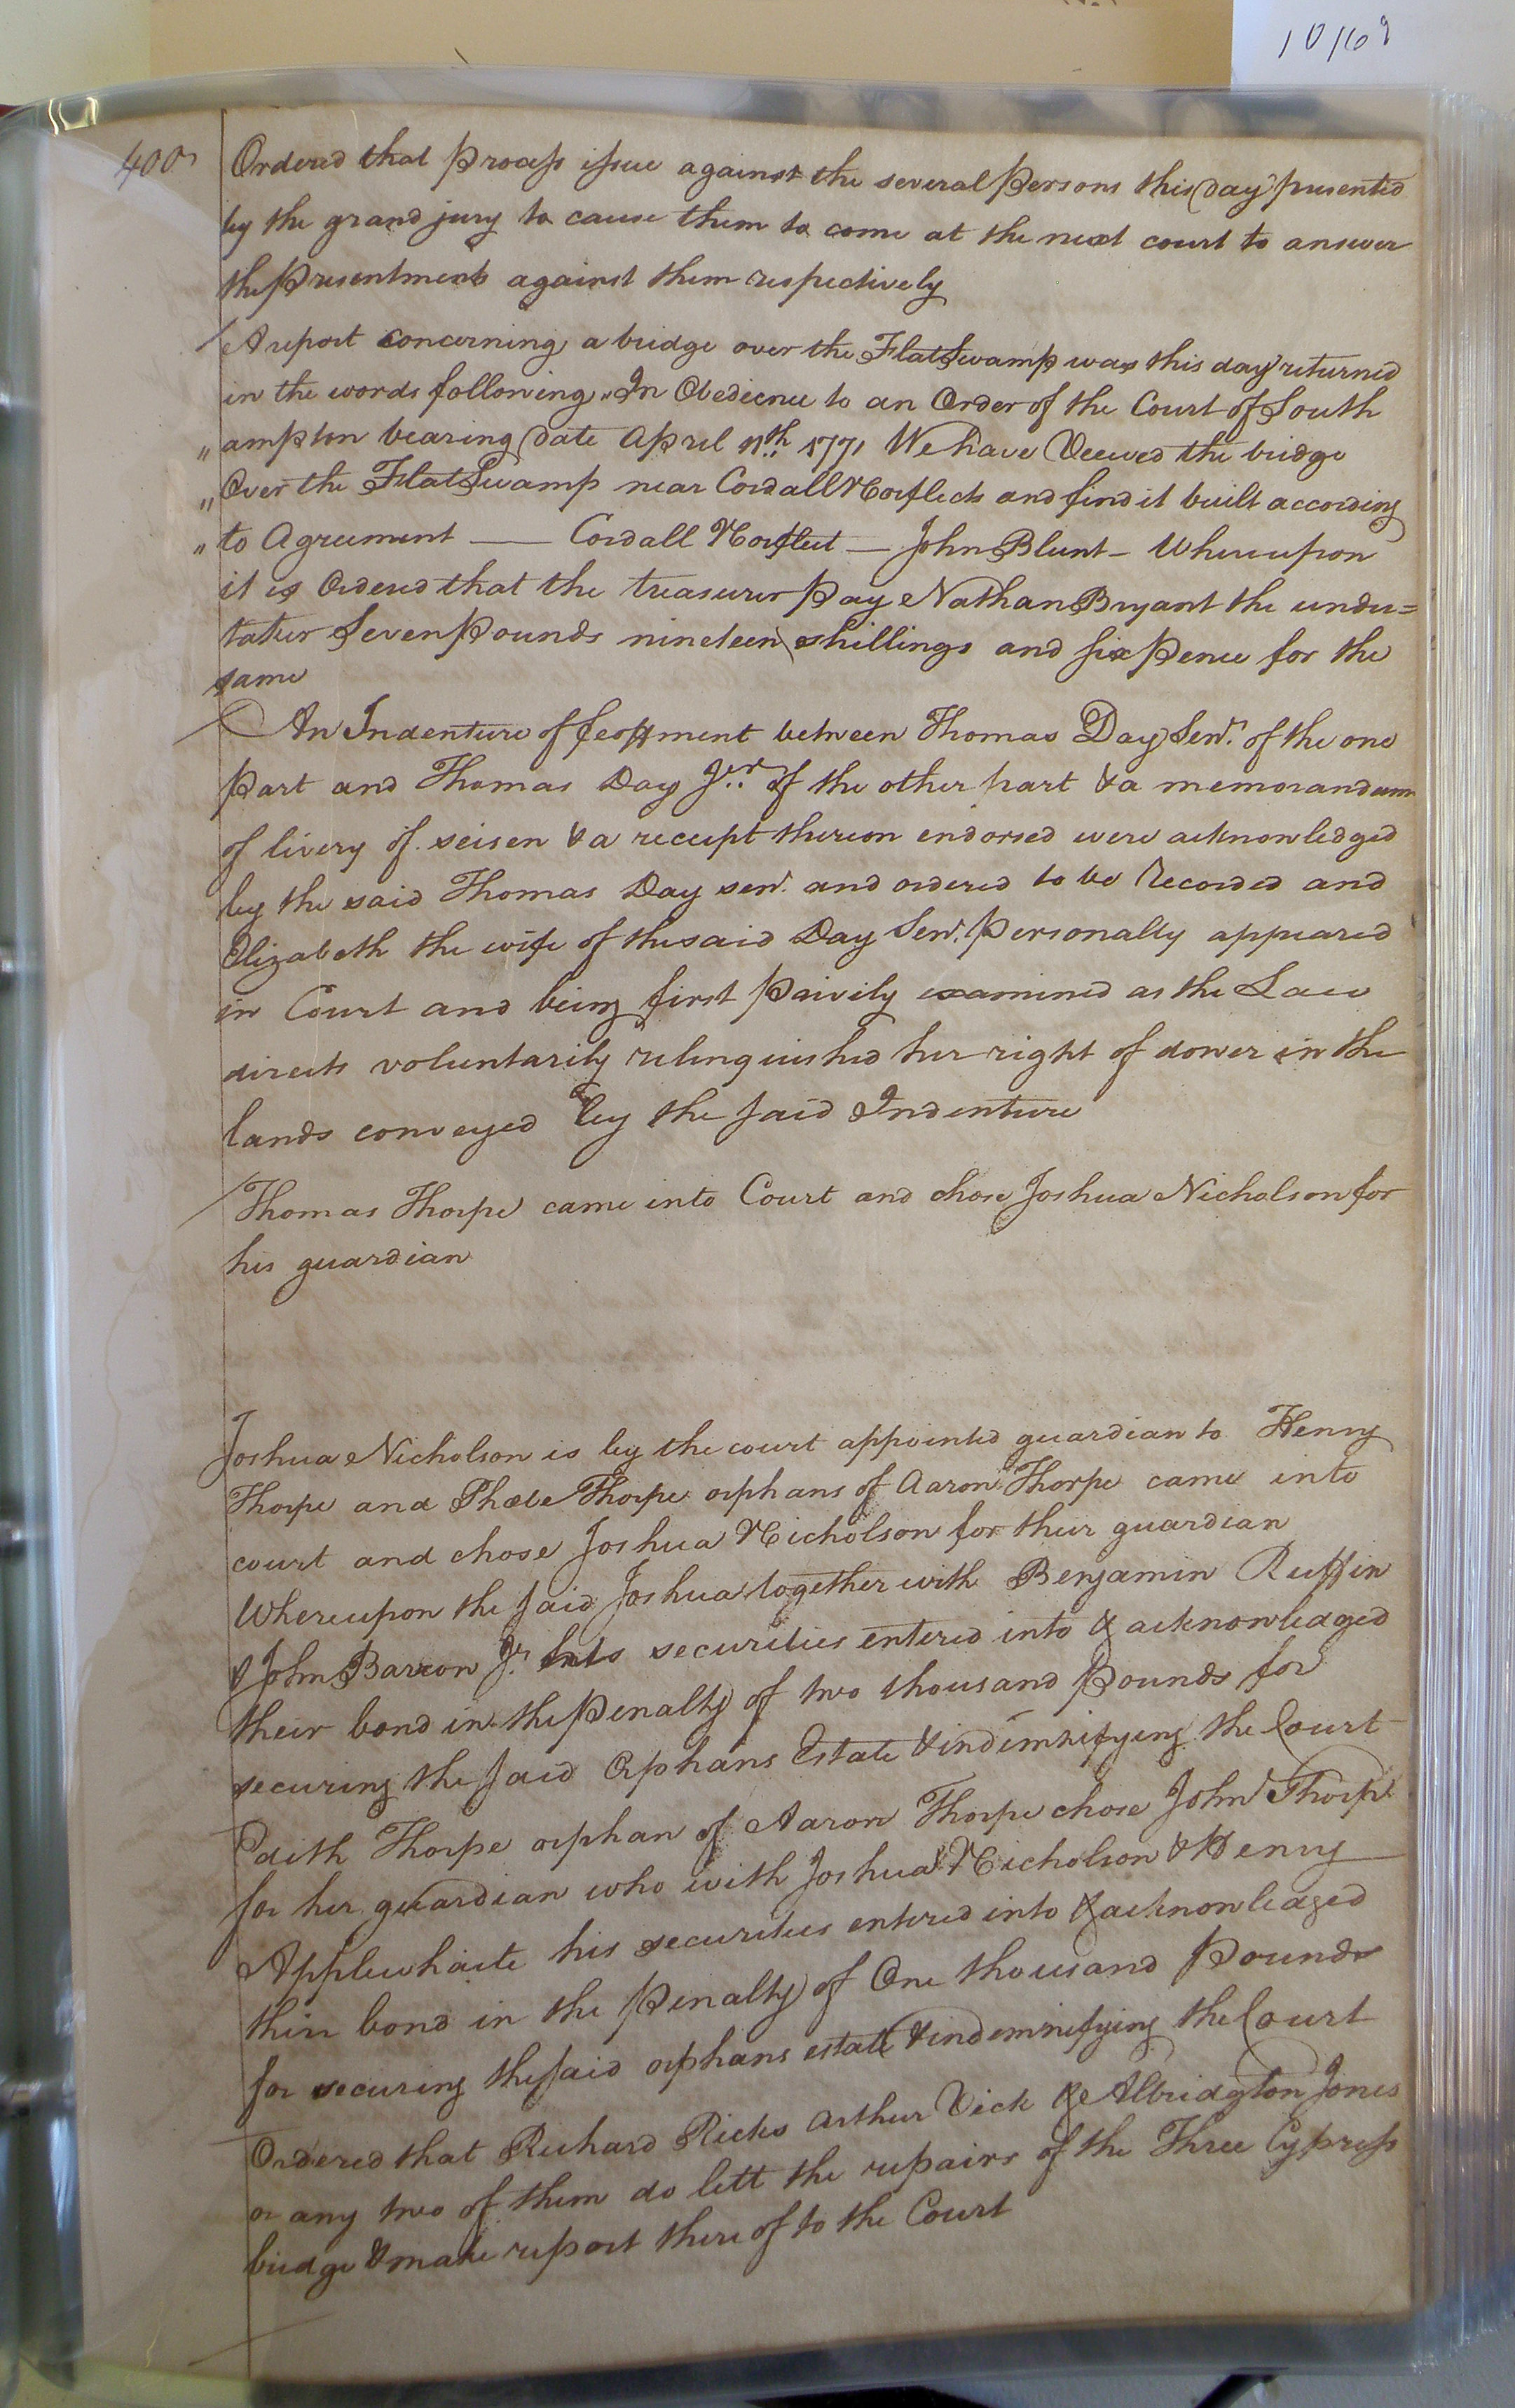 10/69
400
Ordered that Process issue against the several Persons this day presented
by the grand jury to cause them to come at the next court to answer
the Presentments against them respectively
A report concerning a bridge over the Flat Swamp was this day returned
in the words following "In Obedience to an Order of the Court of South
" ampton bearing date April 11th 1771 We have Veewed the bridge
" Over the Flat Swamp near Cordall Norfleets and find it built according
" to Agreement — Cordall Norfleet — John Blunt — Whereupon
it is Ordered that the treasurer Pay Nathan Bryant the under=
taker Seven Pounds nineteen shillings and six Pence for the
same
An Indenture of feoffment between Thomas Day Senr. of the one
Part and Thomas Day Jr. of the other part & a memorandum
of livery of seisen & a receipt thereon endorsed were acknowledged
by the said Thomas Day senr. and ordered to be Recorded and
Elizabeth the wife of the said Day Senr. Personally appeared
in Court and being first Privily examined as the Law
directs voluntarily relinquished her right of dower in the
lands conveyed by the said Indenture
Thomas Thorpe came into Court and chose Joshua Nicholson for
his guardian
Joshua Nicholson is by the court appointed guardian to Henry
Thorpe and Phœbe Thorpe orphans of Aaron Thorpe came into
court and chose Joshua Nicholson for their guardian
Whereupon the said Joshua together with Benjamin Ruffin
& John Barrow Jr. securities entered into & acknowledged
their bond in the Penalty of two thousand Pounds for
securing the said Orphans Estate & indemnifying the Court
Edith Thorpe orphan of Aaron Thorpe chose John Thorpe
for her guardian who with Joshua Nicholson & Henry
Applewhaite his securities entered into & acknowledged
their bond in the Penalty of One thousand Pounds
for securing the said orphans estate & indemnifying the Court
Ordered that Richard Ricks Arthur Vick & Albridgton Jones
or any two of them do lett the repairs of the Three Cypress
bridge & make report there of to the Court